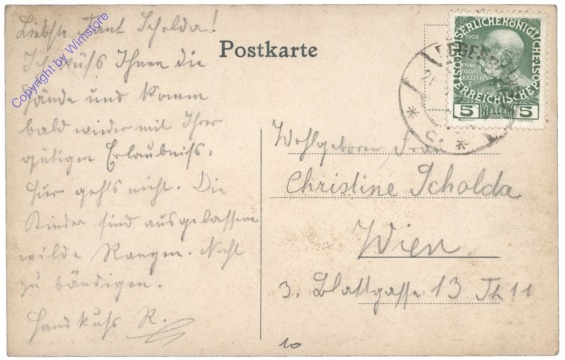 Liebste Tant Scholda!
Ich küss Ihnen die
Hände und komm
bald wieder mit Ihrer
gütigen Erlaubniss.
Hier gehts nicht. Die
Kinder sind ausgelassene
wilde Rangen. Nicht
zu bändigen.
Handkuss R.
Copyright by Winstore
Postkarte
KAISERLICHE KÖNIGLICHE
ÖSTERREICHISCHE
5 HELLER 5
EGGENB
C.
Wohlgeboren Frau
Christine Scholda
Wien
3. Blattgasse 13 Th 11
10